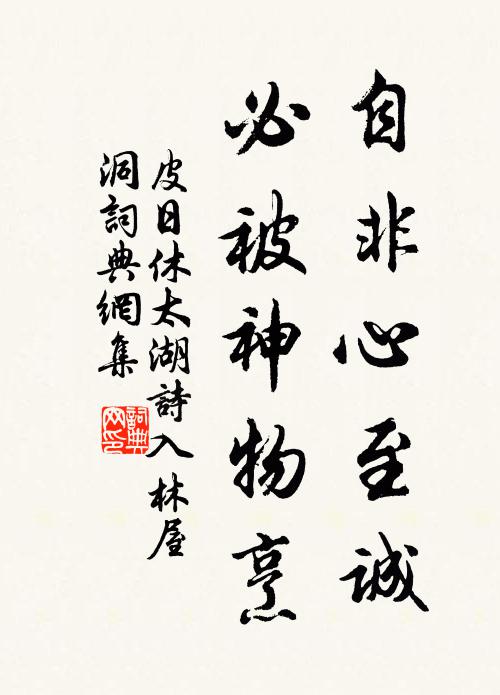 自非心至誠
必被神物烹
皮日休太湖詩入林屋
洞詞典網集
詞典
网印